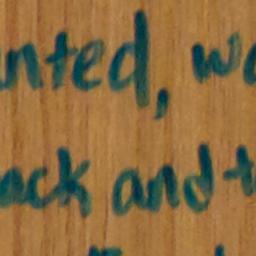 nted, w
ack and t